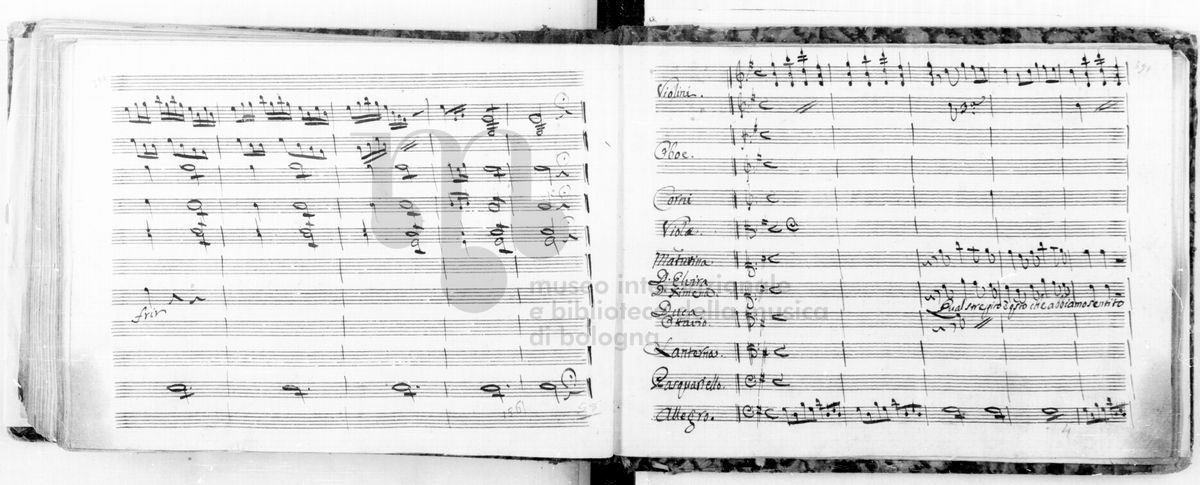 frir
museo internazionale
e biblioteca della musica
di bologna
Violini.
Oboe.
Corni
Viola.
Maturina.
D. Elvira
D. Ximena
Duca
Ottavio.
Qual strepito è questo che abbiamo sentito
Lanterna.
Pasquariello.
Allegro.
4